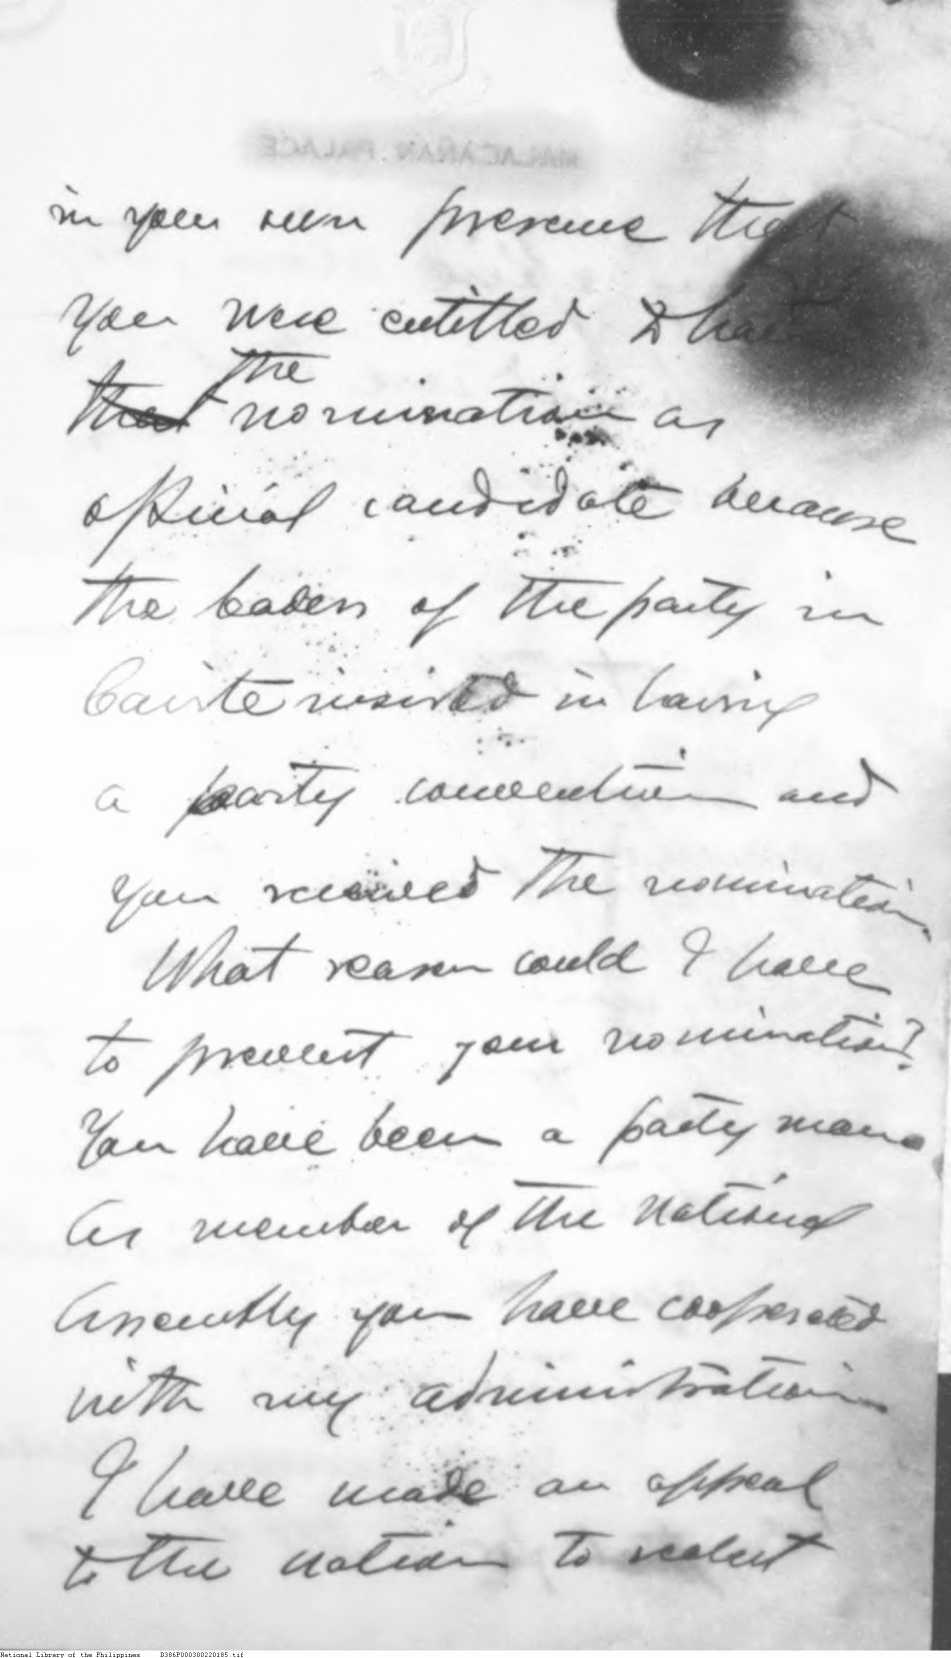 MALACAÑAN PALACE
in your own presence that
you were entitled to have
the
that nomination as
official candidate because
the leaders of the party in
Cavite insisted in having
a party convention and
you received the nomination.
What reason could I have
to prevent your nomination?
You have been a party man.
As member of the National
Assembly you have cooperated
with my administration
I have made an appeal
to the nation to reelect
National Library of the Philippines B386P000300220185.tif